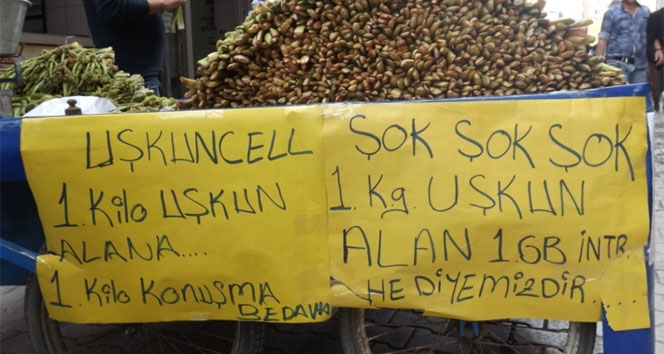 UŞKUNCELL
1. Kilo UŞKUN
ALANA....
1. Kilo KONUŞMA
BEDAVA
ŞOK ŞOK ŞOK
1. Kg. UŞKUN
ALAN 1.GB İNTR.
HEDİYEMİZDİR.